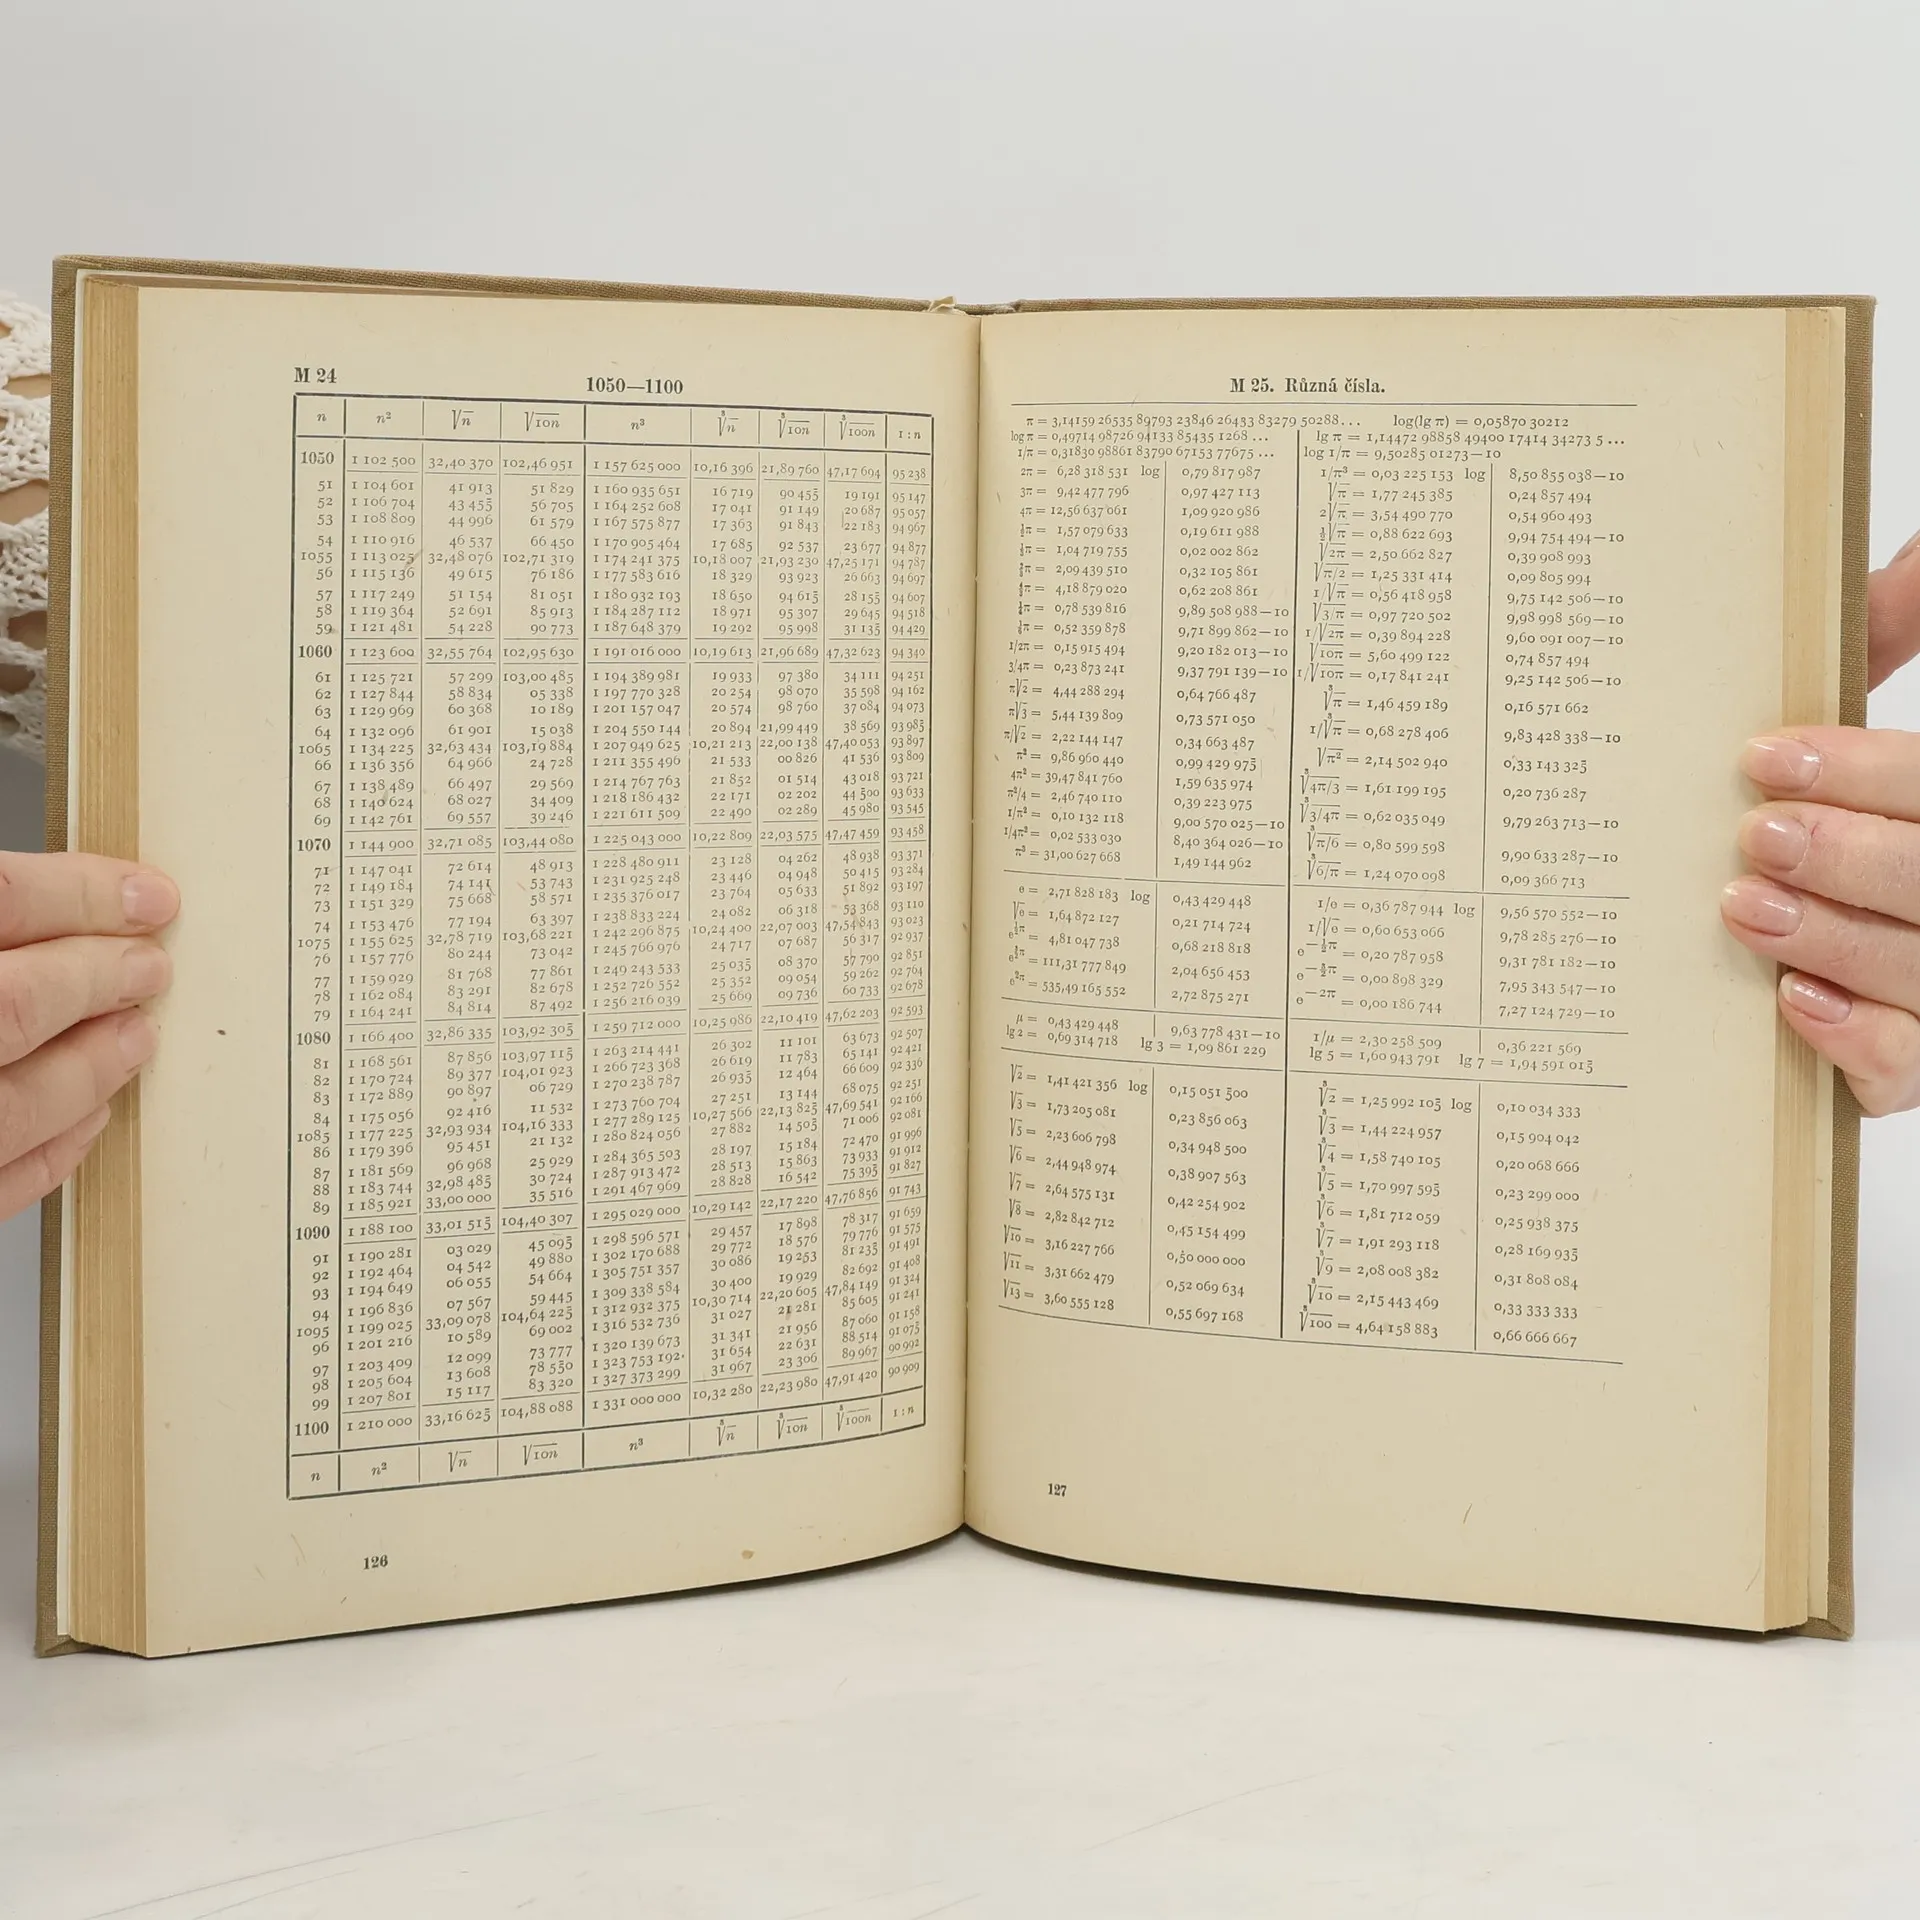 M 24
1050—1100
n n² √n √10n n³ ∛n ∛10n ∛100n 1 : n
1050 1 102 500 32,40 370 102,46 951 1 157 625 000 10,16 396 21,89 760 47,17 694 95 238
51 1 104 601 41 913 51 829 1 160 935 651 16 719 90 455 19 191 95 147
52 1 106 704 43 455 56 705 1 164 252 608 17 041 91 149 20 687 95 057
53 1 108 809 44 996 61 579 1 167 575 877 17 363 91 843 22 183 94 967
54 1 110 916 46 537 66 450 1 170 905 464 17 685 92 537 23 677 94 877
1055 1 113 025 32,48 076 102,71 319 1 174 241 375 10,18 007 21,93 230 47,25 171 94 787
56 1 115 136 49 615 76 186 1 177 583 616 18 329 93 923 26 663 94 697
57 1 117 249 51 154 81 051 1 180 932 193 18 650 94 615 28 155 94 607
58 1 119 364 52 691 85 913 1 184 287 112 18 971 95 307 29 645 94 518
59 1 121 481 54 228 90 773 1 187 648 379 19 292 95 998 31 135 94 429
1060 1 123 600 32,55 764 102,95 630 1 191 016 000 10,19 613 21,96 689 47,32 623 94 340
61 1 125 721 57 299 103,00 485 1 194 389 981 19 933 97 380 34 111 94 251
62 1 127 844 58 834 05 338 1 197 770 328 20 254 98 070 35 598 94 162
63 1 129 969 60 368 10 189 1 201 157 047 20 574 98 760 37 084 94 073
64 1 132 096 61 901 15 038 1 204 550 144 20 894 21,99 449 38 569 93 985
1065 1 134 225 32,63 434 103,19 884 1 207 949 625 10,21 213 22,00 138 47,40 053 93 897
66 1 136 356 64 966 24 728 1 211 355 496 21 533 00 826 41 536 93 809
67 1 138 489 66 497 29 569 1 214 767 763 21 852 01 514 43 018 93 721
68 1 140 624 68 027 34 409 1 218 186 432 22 171 02 202 44 500 93 633
69 1 142 761 69 557 39 246 1 221 611 509 22 490 02 289 45 980 93 545
1070 1 144 900 32,71 085 103,44 080 1 225 043 000 10,22 809 22,03 575 47,47 459 93 458
71 1 147 041 72 614 48 913 1 228 480 911 23 128 04 262 48 938 93 371
72 1 149 184 74 141 53 743 1 231 925 248 23 446 04 948 50 415 93 284
73 1 151 329 75 668 58 571 1 235 376 017 23 764 05 633 51 892 93 197
74 1 153 476 77 194 63 397 1 238 833 224 24 082 06 318 53 368 93 110
1075 1 155 625 32,78 719 103,68 221 1 242 296 875 10,24 400 22,07 003 47,54 843 93 023
76 1 157 776 80 244 73 042 1 245 766 976 24 717 07 687 56 317 92 937
77 1 159 929 81 768 77 861 1 249 243 533 25 035 08 370 57 790 92 851
78 1 162 084 83 291 82 678 1 252 726 552 25 352 09 054 59 262 92 764
79 1 164 241 84 814 87 492 1 256 216 039 25 669 09 736 60 733 92 678
1080 1 166 400 32,86 335 103,92 305 1 259 712 000 10,25 986 22,10 419 47,62 203 92 593
81 1 168 561 87 856 103,97 115 1 263 214 441 26 302 11 101 63 673 92 507
82 1 170 724 89 377 104,01 923 1 266 723 368 26 619 11 783 65 141 92 421
83 1 172 889 90 897 06 729 1 270 238 787 26 935 12 464 66 609 92 336
84 1 175 056 92 416 11 532 1 273 760 704 27 251 13 144 68 075 92 251
1085 1 177 225 32,93 934 104,16 333 1 277 289 125 10,27 566 22,13 825 47,69 541 92 166
86 1 179 396 95 451 21 132 1 280 824 056 27 882 14 505 71 006 92 081
87 1 181 569 96 968 25 929 1 284 365 503 28 197 15 184 72 470 91 996
88 1 183 744 32,98 485 30 724 1 287 913 472 28 513 15 863 73 933 91 912
89 1 185 921 33,00 000 35 516 1 291 467 969 28 828 16 542 75 395 91 827
1090 1 188 100 33,01 515 104,40 307 1 295 029 000 10,29 142 22,17 220 47,76 856 91 743
91 1 190 281 03 029 45 095 1 298 596 571 29 457 17 898 78 317 91 659
92 1 192 464 04 542 49 880 1 302 170 688 29 772 18 576 79 776 91 575
93 1 194 649 06 055 54 664 1 305 751 357 30 086 19 253 81 235 91 491
94 1 196 836 07 567 59 445 1 309 338 584 30 400 19 929 82 692 91 408
1095 1 199 025 33,09 078 104,64 225 1 312 932 375 10,30 714 22,20 605 47,84 149 91 324
96 1 201 216 10 589 69 002 1 316 532 736 31 027 21 281 85 605 91 241
97 1 203 409 12 099 73 777 1 320 139 673 31 341 21 956 87 060 91 158
98 1 205 604 13 608 78 550 1 323 753 192 31 654 22 631 88 514 91 075
99 1 207 801 15 117 83 320 1 327 373 299 31 967 23 306 89 967 90 992
1100 1 210 000 33,16 625 104,88 088 1 331 000 000 10,32 280 22,23 980 47,91 420 90 909
n n² √n √10n n³ ∛n ∛10n ∛100n 1 : n
126
M 25. Různá čísla.
π = 3,14159 26535 89793 23846 26433 83279 50288... log(lg π) = 0,05870 30212
log π = 0,49714 98726 94133 85435 1268 ... lg π = 1,14472 98858 49400 17414 34273 5 ...
1/π = 0,31830 98861 83790 67153 77675 ... log 1/π = 9,50285 01273—10
2π = 6,28 318 531 log 0,79 817 987 1/π³ = 0,03 225 153 log 8,50 855 038—10
3π = 9,42 477 796 0,97 427 113 √π = 1,77 245 385 0,24 857 494
4π = 12,56 637 061 1,09 920 986 2√π = 3,54 490 770 0,54 960 493
½π = 1,57 079 633 0,19 611 988 ½√π = 0,88 622 693 9,94 754 494—10
⅓π = 1,04 719 755 0,02 002 862 √2π = 2,50 662 827 0,39 908 993
⅔π = 2,09 439 510 0,32 105 861 √π/2 = 1,25 331 414 0,09 805 994
4/3π = 4,18 879 020 0,62 208 861 1/√π = 0,56 418 958 9,75 142 506—10
¼π = 0,78 539 816 9,89 508 988—10 √3/π = 0,97 720 502 9,98 998 569—10
⅙π = 0,52 359 878 9,71 899 862—10 1/√2π = 0,39 894 228 9,60 091 007—10
1/2π = 0,15 915 494 9,20 182 013—10 √10π = 5,60 499 122 0,74 857 494
3/4π = 0,23 873 241 9,37 791 139—10 1/√10π = 0,17 841 241 9,25 142 506—10
π√2 = 4,44 288 294 0,64 766 487 ∛π = 1,46 459 189 0,16 571 662
π√3 = 5,44 139 809 0,73 571 050 1/∛π = 0,68 278 406 9,83 428 338—10
π/√2 = 2,22 144 147 0,34 663 487 ∛π² = 2,14 502 940 0,33 143 325
π² = 9,86 960 440 0,99 429 975 ∛4π/3 = 1,61 199 195 0,20 736 287
4π² = 39,47 841 760 1,59 635 974 ∛3/4π = 0,62 035 049 9,79 263 713—10
π²/4 = 2,46 740 110 0,39 223 975 ∛π/6 = 0,80 599 598 9,90 633 287—10
1/π² = 0,10 132 118 9,00 570 025—10 ∛6/π = 1,24 070 098 0,09 366 713
1/4π² = 0,02 533 030 8,40 364 026—10
π³ = 31,00 627 668 1,49 144 962
e = 2,71 828 183 log 0,43 429 448 1/e = 0,36 787 944 log 9,56 570 552—10
√e = 1,64 872 127 0,21 714 724 1/√e = 0,60 653 066 9,78 285 276—10
e^½π = 4,81 047 738 0,68 218 818 e^—½π = 0,20 787 958 9,31 781 182—10
e^3/2π = 111,31 777 849 2,04 656 453 e^—3/2π = 0,00 898 329 7,95 343 547—10
e^2π = 535,49 165 552 2,72 875 271 e^—2π = 0,00 186 744 7,27 124 729—10
μ = 0,43 429 448 9,63 778 431—10 1/μ = 2,30 258 509 0,36 221 569
lg 2 = 0,69 314 718 lg 3 = 1,09 861 229 lg 5 = 1,60 943 791 lg 7 = 1,94 591 015
√2 = 1,41 421 356 log 0,15 051 500 ∛2 = 1,25 992 105 log 0,10 034 333
√3 = 1,73 205 081 0,23 856 063 ∛3 = 1,44 224 957 0,15 904 042
√5 = 2,23 606 798 0,34 948 500 ∛4 = 1,58 740 105 0,20 068 666
√6 = 2,44 948 974 0,38 907 563 ∛5 = 1,70 997 595 0,23 299 000
√7 = 2,64 575 131 0,42 254 902 ∛6 = 1,81 712 059 0,25 938 375
√8 = 2,82 842 712 0,45 154 499 ∛7 = 1,91 293 118 0,28 169 935
√10 = 3,16 227 766 0,50 000 000 ∛9 = 2,08 008 382 0,31 808 084
√11 = 3,31 662 479 0,52 069 634 ∛10 = 2,15 443 469 0,33 333 333
√13 = 3,60 555 128 0,55 697 168 ∛100 = 4,64 158 883 0,66 666 667
127